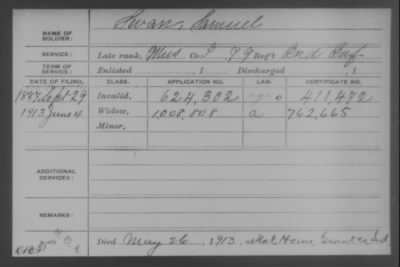 NAME OF SOLDIER: Swans Samuel
SERVICE: Late rank, Mus Co. I 79 Reg't Ind Inf
TERM OF SERVICE: Enlisted , 1 Discharged , 1
DATE OF FILING. CLASS. APPLICATION NO. LAW. CERTIFICATE NO.
1887 Sept 29 Invalid, 624,302 411,472
1913 June 4 Widow, 1,008,808 a 762,665
Minor,
ADDITIONAL SERVICES:
REMARKS:
Died May 26, 1913, at Nat. Home, Grant co Ind